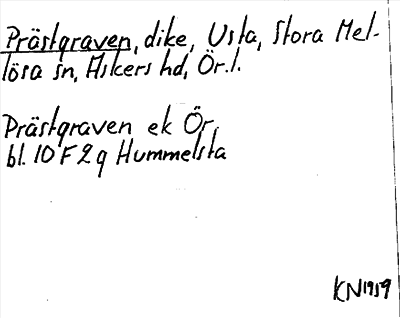 Prästgraven, dike, Usta, Stora Mel-
lösa sn, Askers hd, Ör.l.
Prästgraven ek Ör.
bl. 10 F 2 g Hummelsta
KN 1959